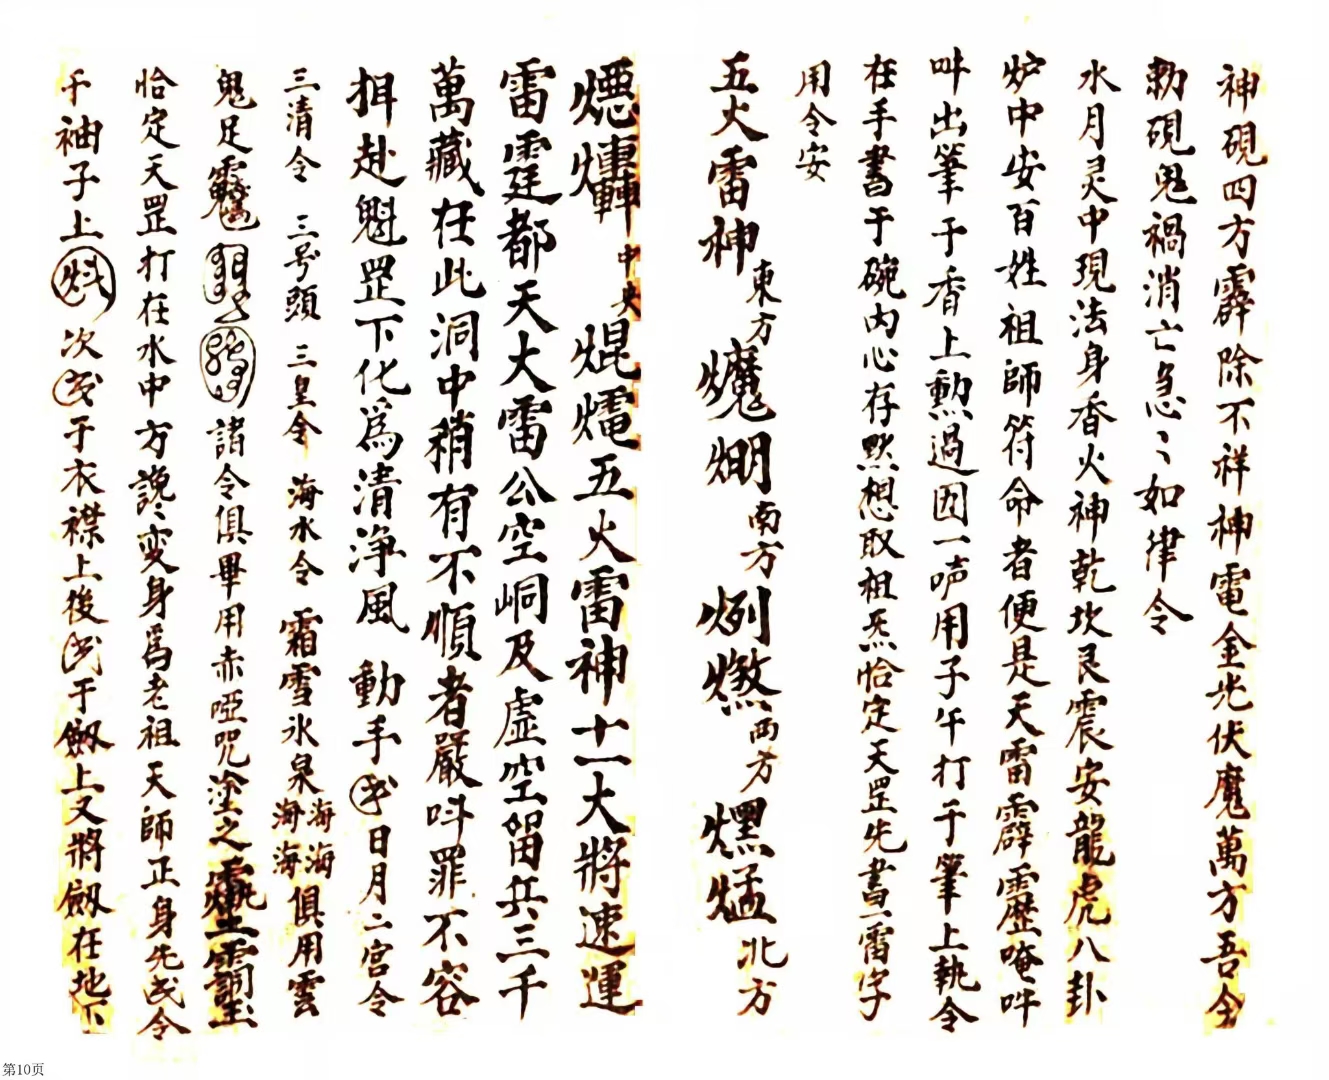 神硯四方霹除不祥神電金光伏魔萬方吾令
勅硯鬼禍消亡急〻如律令
水月灵中現法身香火神乾坎艮震安龍虎八卦
炉中安百姓祖師符命者便是天雷霹靂唵吽
叫出筆于香上勲過因一声用子午打于筆上執令
在手書于碗内心存默想取祖炁恰定天罡先書一雷字
用令安
五火雷神東方 南方 西方 北方
中央 五火雷神十一大將速運
雷霆都天大雷公空峒及虛空留兵三千
萬藏在此洞中稍有不順者嚴吽罪不容
赴魁罡下化爲清淨風 動手 日月二宮令
三清令 三号頭 三皇令 海水令 霜雪氷泉海海海海俱用雲
鬼足 諸令俱畢用赤啞咒塗之
恰定天罡打在水中方 變身爲老祖天師正身先 令
千袖子上 次 于衣襟上後 于劔上又將劔在地下
第10页